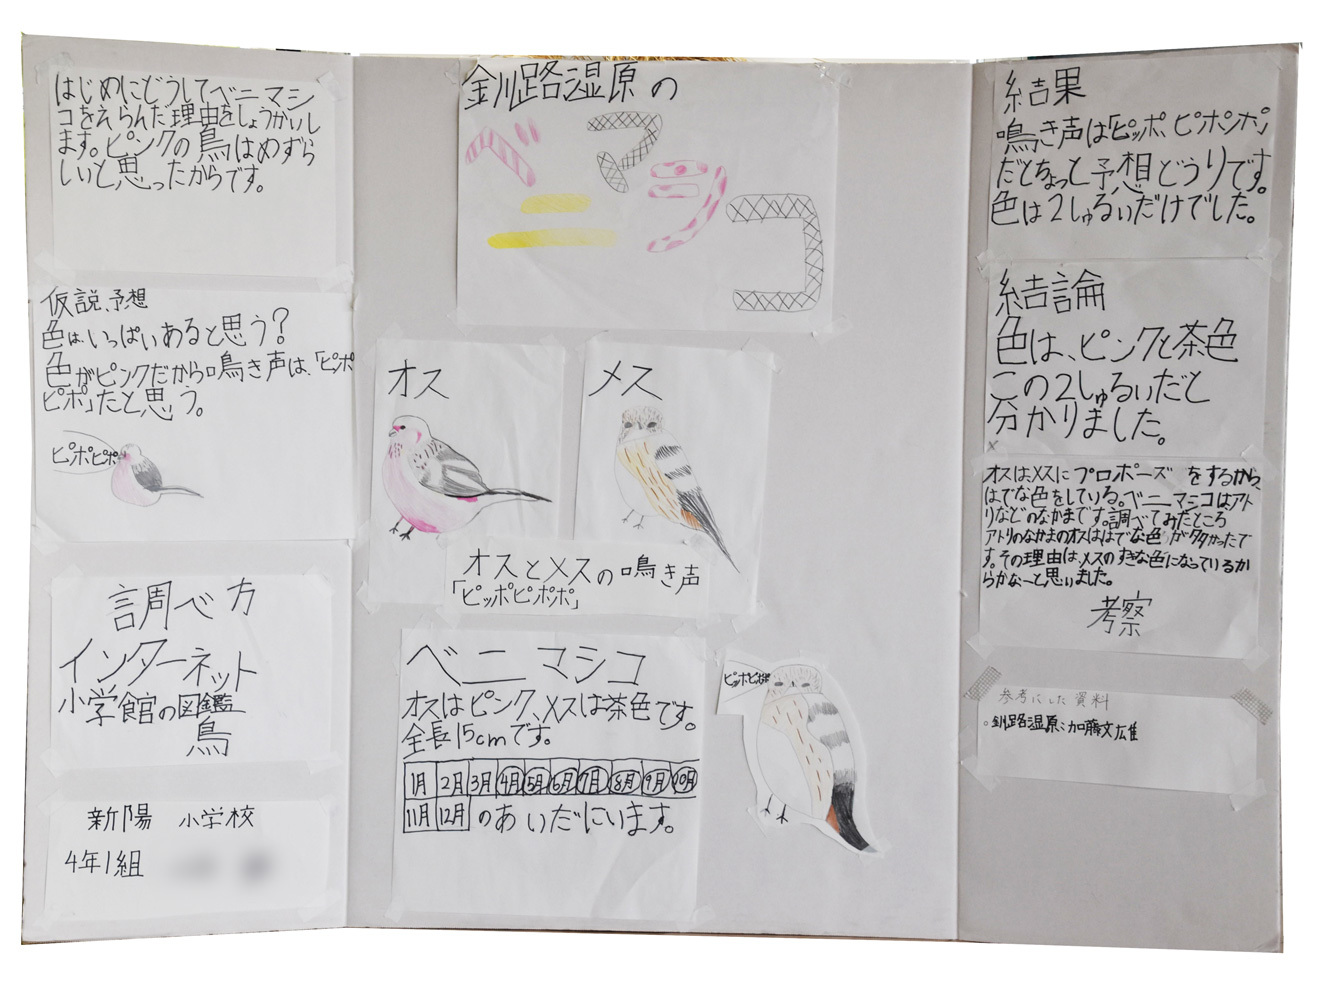 はじめにどうしてベニマシ
コをえらんだ理由をしょうかいし
ます。ピンクの鳥はめずら
しいと思ったからです。
仮説、予想
色は、いっぱいあると思う?
色がピンクだから鳴き声は、「ピポ
ピポ」だと思う。
ピポピポ
調べ方
インターネット
小学館の図鑑
鳥
新陽 小学校
4年1組
釧路湿原の
ベニマシコ
オス
メス
オスとメスの鳴き声
「ピッポピポポ」
ベニマシコ
オスはピンク、メスは茶色です。
全長15cmです。
1月 2月 3月 4月 5月 6月 7月 8月 9月 10月
11月 12月 のあいだにいます。
ピッポピポポ
結果
鳴き声は「ピッポ、ピポンポ」
だとちょっと予想どうりです。
色は2しゅるいだけでした。
結論
色は、ピンクと茶色
この2しゅるいだと
分かりました。
オスはメスにプロポーズをするから、
はでな色をしている。ベニマシコはアト
リなどのなかまです。調べてみたところ
アトリのなかまのオスははでな色が多かったで
す。その理由は、メスのすきな色になっているか
らかな〜と思いました。
考察
参考にした資料
。釧路湿原:加藤文雄